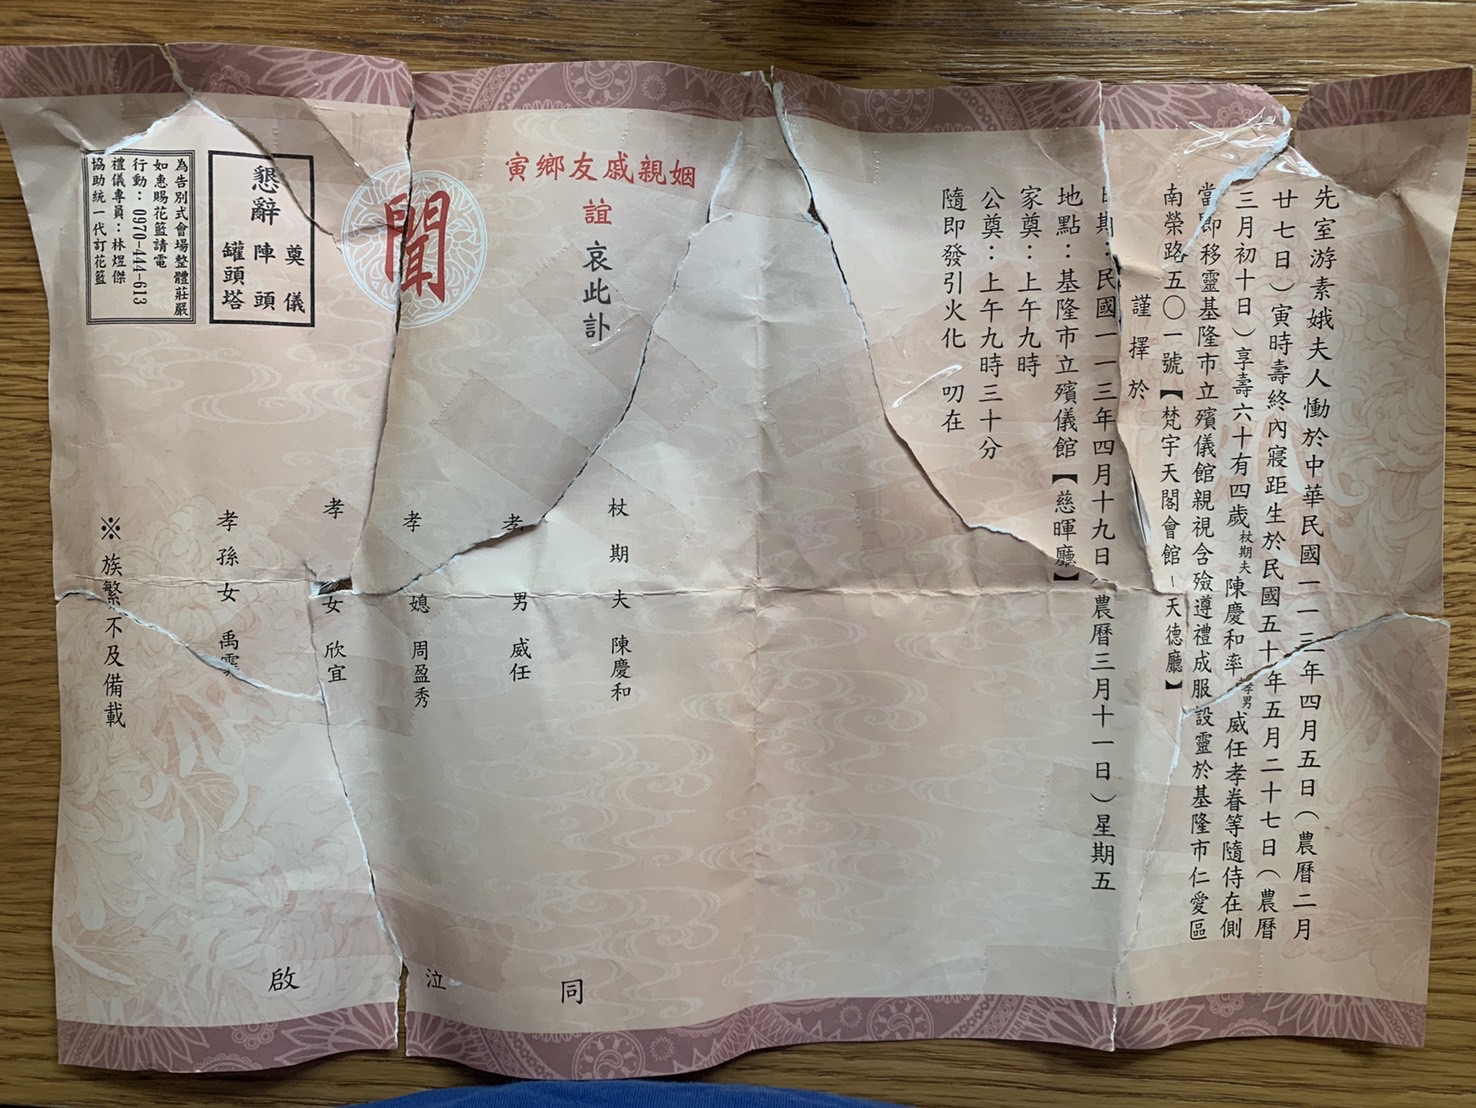 先室游素娥夫人慟於中華民國一一三年四月五日(農曆二月
廿七日)寅時壽終內寢距生於民國五十年五月二十七日(農曆
三月初十日)享壽六十有四歲杖期夫陳慶和率孝男威任孝眷等隨侍在側
當即移靈基隆市立殯儀館親視含殮遵禮成服設靈於基隆市仁愛區
南榮路五〇一號【梵宇天閣會館-天德廳】
謹擇於
日期:民國一一三年四月十九日(農曆三月十一日)星期五
地點:基隆市立殯儀館【慈暉廳】
家奠:上午九時
公奠:上午九時三十分
隨即發引火化 叨在
姻親戚友鄉寅
誼
哀此訃
聞
杖期夫 陳慶和
孝男 威任
孝媳 周盈秀
孝女 欣宜
孝孫女 禹
※族繁不及備載
同
泣
啟
懇辭
奠儀
陣頭
罐頭塔
為告別式會場整體莊嚴
如惠賜花籃請電
行動:0970-444-613
禮儀專員:林煜傑
協助統一代訂花籃